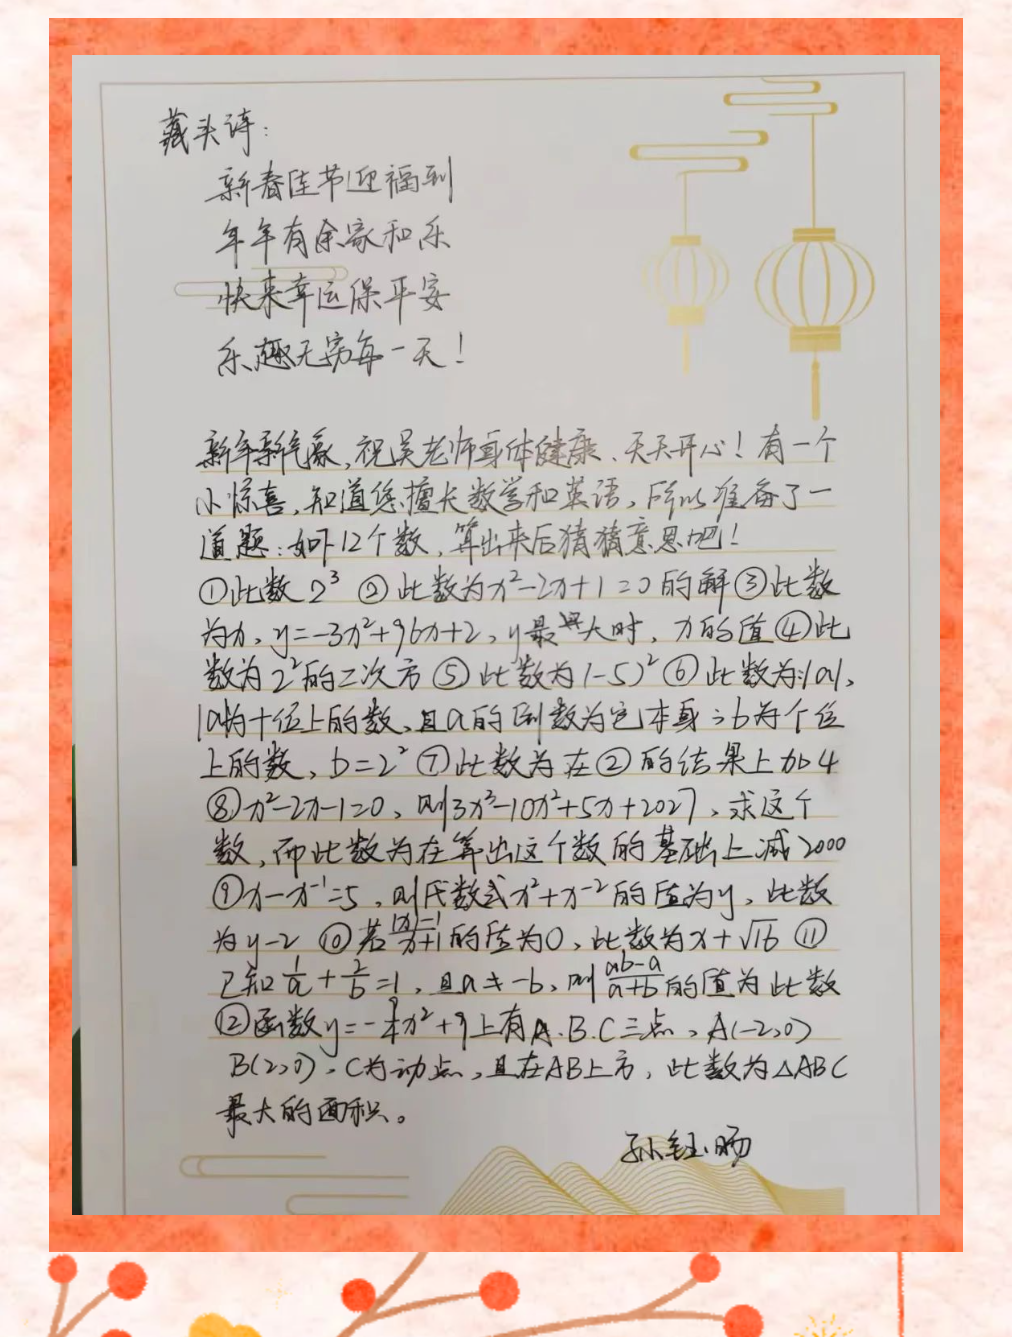 藏头诗:
新春佳节迎福到
年年有余家和乐
快来幸运保平安
乐趣无穷每一天!
新年新气象,祝吴老师身体健康、天天开心!有一个
小惊喜,知道您擅长数学和英语,所以准备了一
道题:如下12个数,算出来后猜猜意思吧!
①此数2³ ②此数为x²-2x+1=0的解③此数
为x,y=-3x²+96x+2,y最大时,x的值④此
数为2²的二次方⑤此数为(-5)²⑥此数为:|a|,
|a|为十位上的数,且a的倒数为它本身;b为个位
上的数,b=2²⑦此数为在②的结果上加4
⑧x²-2x-1=0,则3x³-10x²+5x+2027,求这个
数,而此数为在算出这个数的基础上减2000
⑨x-x⁻¹=5,则代数式x²+x⁻²的值为y,此数
为y-2 ⑩若|x|-1/x+1的值为0,此数为x+√16 ⑪
已知1/a+2/b=1,且a≠-b,则ab-a/a+b的值为此数
⑫函数y=-9/4x²+9上有A.B.C三点,A(-2,0)
B(2,0),C为动点,且在AB上方,此数为△ABC
最大的面积。
孙钰旸